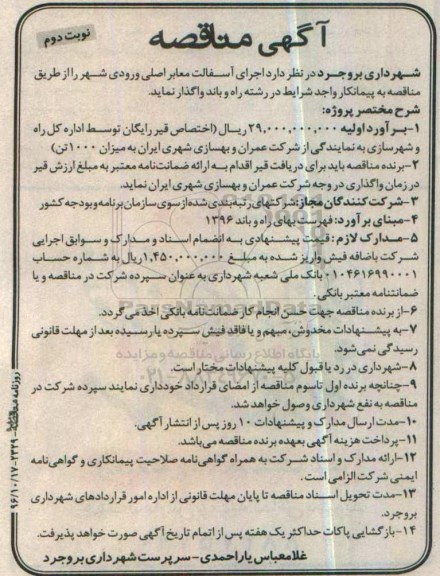 آگهی مناقصه
نوبت دوم
شهرداری بروجرد در نظر دارد اجرای آسفالت معابر اصلی ورودی شهر را از طریق
مناقصه به پیمانکار واجد شرایط در رشته راه و باند واگذار نماید.
شرح مختصر پروژه:
۱-برآورد اولیه ۲۹,۰۰۰,۰۰۰,۰۰۰ ریال (اختصاص قیر رایگان توسط اداره کل راه
و شهرسازی به نمایندگی از شرکت عمران و بهسازی شهری ایران به میزان ۱۰۰۰ تن)
۲-برنده مناقصه باید برای دریافت قیر اقدام به ارائه ضمانت‌نامه معتبر به مبلغ ارزش قیر
در زمان واگذاری در وجه شرکت عمران و بهسازی شهری ایران نماید.
۳-شرکت کنندگان مجاز: شرکتهای رتبه بندی شده از سوی سازمان برنامه وبودجه کشور
۴-مبنای برآورد: فهرست بهای راه و باند ۱۳۹۶
۵-مدارک لازم: قیمت پیشنهادی به انضمام اسناد و مدارک و سوابق اجرایی
شرکت باضافه فیش واریز شده به مبلغ ۱,۴۵۰,۰۰۰,۰۰۰ ریال به شماره حساب
۰۱۰۴۶۱۶۹۹۰۰۰۱ بانک ملی شعبه شهرداری به عنوان سپرده شرکت در مناقصه و یا
ضمانتنامه معتبر بانکی.
۶-از برنده مناقصه جهت حسن انجام کار ضمانت‌نامه بانکی اخذ می‌گردد.
۷-به پیشنهادات مخدوش، مبهم و یا فاقد فیش سپرده یا رسیده بعد از مهلت قانونی
رسیدگی نمی‌شود.
۸-شهرداری در رد یا قبول کلیه پیشنهادات مختار است.
۹-چنانچه برنده اول تا سوم مناقصه از امضای قرارداد خودداری نمایند سپرده شرکت در
مناقصه به نفع شهرداری وصول خواهد شد.
۱۰-مدت ارسال مدارک و پیشنهادات ۱۰ روز پس از انتشار آگهی.
۱۱-پرداخت هزینه آگهی بعهده برنده مناقصه می‌باشد.
۱۲-ارائه مدارک و اسناد شرکت به همراه گواهی‌نامه صلاحیت پیمانکاری و گواهی‌نامه
ایمنی شرکت الزامی است.
۱۳-مدت تحویل اسناد مناقصه تا پایان مهلت قانونی از اداره امور قراردادهای شهرداری
بروجرد.
۱۴-بازگشایی پاکات حداکثر یک هفته پس از اتمام تاریخ آگهی صورت خواهد پذیرفت.
غلامعباس یاراحمدی-سرپرست شهرداری بروجرد
۹۶/۱۰/۱۷-۲۳۲۹